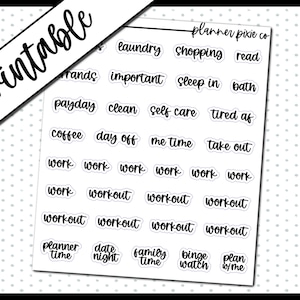 printable
planner pixie co
laundry shopping read
errands important sleep in bath
payday clean self care tired af
coffee day off me time take out
work work work work work
work workout workout workout
workout workout workout workout
planner time date night family time binge watch plan w/me